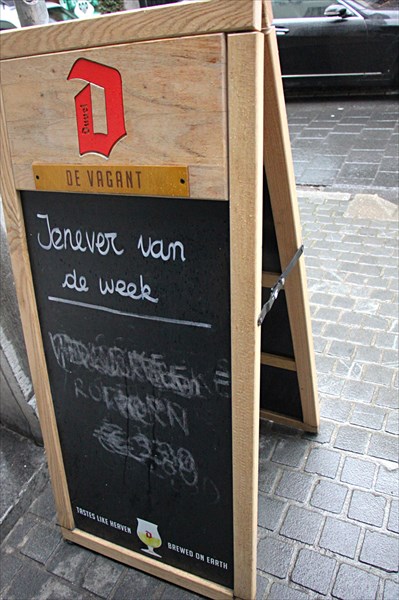 Duvel
DE VAGANT
Jenever van
de week
TASTES LIKE HEAVEN
BREWED ON EARTH